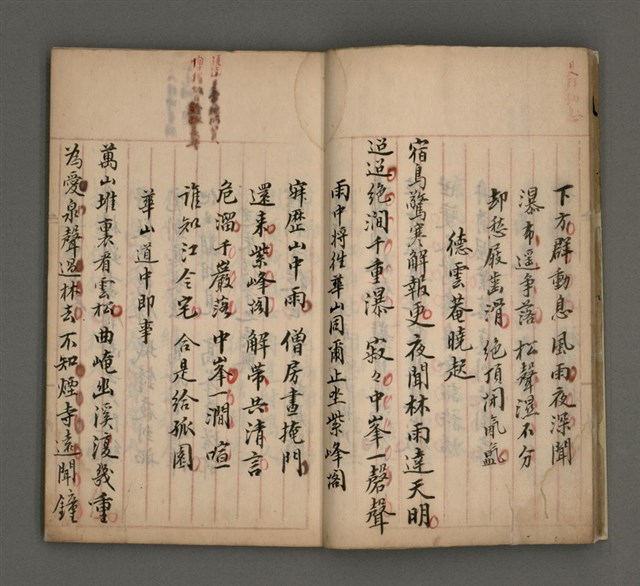 下方群動息 風雨夜深聞
瀑布遥爭落 松聲濕不分
却愁屐齒滑 絶頂閉氤氲
德雲菴曉起
宿鳥驚寒解報更 夜聞林雨達天明
迢迢絶澗千重瀑 寂々中峯一磬聲
雨中將往華山同爾止坐紫峰閣
寂歷山中雨 僧房晝掩門
還来紫峰閣 解帶共清言
危溜千嚴落 中峯一澗喧
誰知江令宅 合是給孤園
華山道中即事
萬山堆裏看雲松 曲崦幽溪渡幾重
為愛泉聲過林去 不知煙寺遠聞鐘